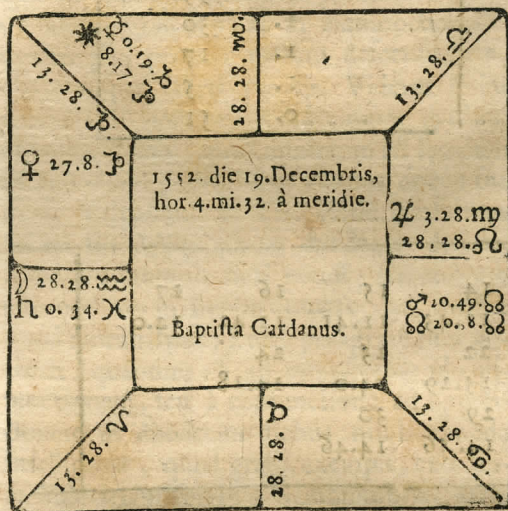 ☿ 0.19. ♑
✷ 8.17. ♑
13. 28. ♑
28. 28. ♏
13. 28. ♎
♀ 27.8. ♑
1552. die 19. Decembris,
hor. 4. mi. 32. à meridie.
♃ 3.28. ♍
28. 28. ♌
☽ 28.28. ♒
♄ 0. 34. ♓
♂ 20.49. ☊
☊ 20.8. ☊
Baptiſta Cardanus.
13. 28. ♈
28. 28. ♉
13. 28. ♋